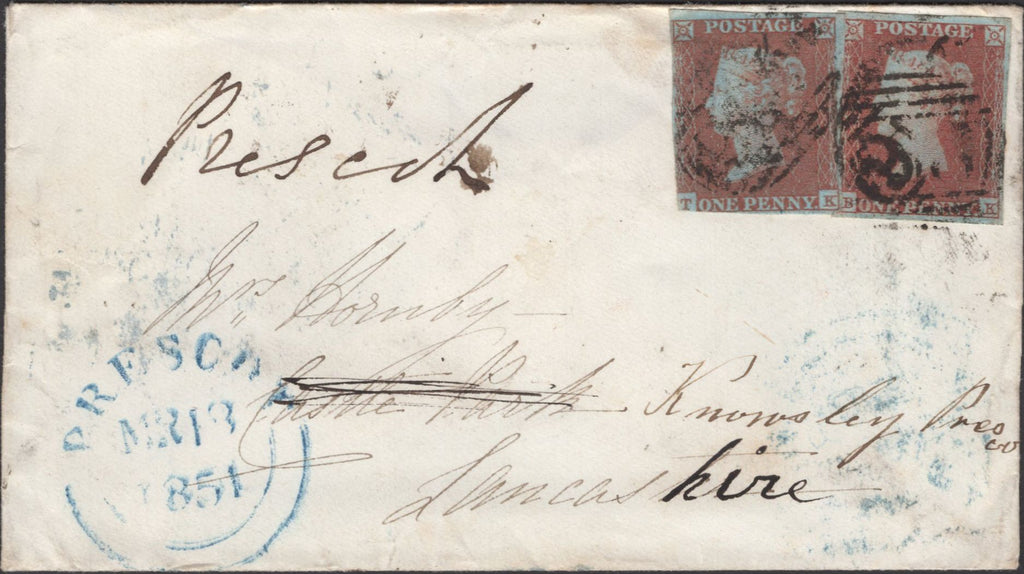 POSTAGE POSTAGE
T ONE PENNY. K B ONE PENNY. K
Prescot
Mrs Hornby
Castle Park Knowsley Pres
co
Lancashire
PRESCO
MR 13
1851